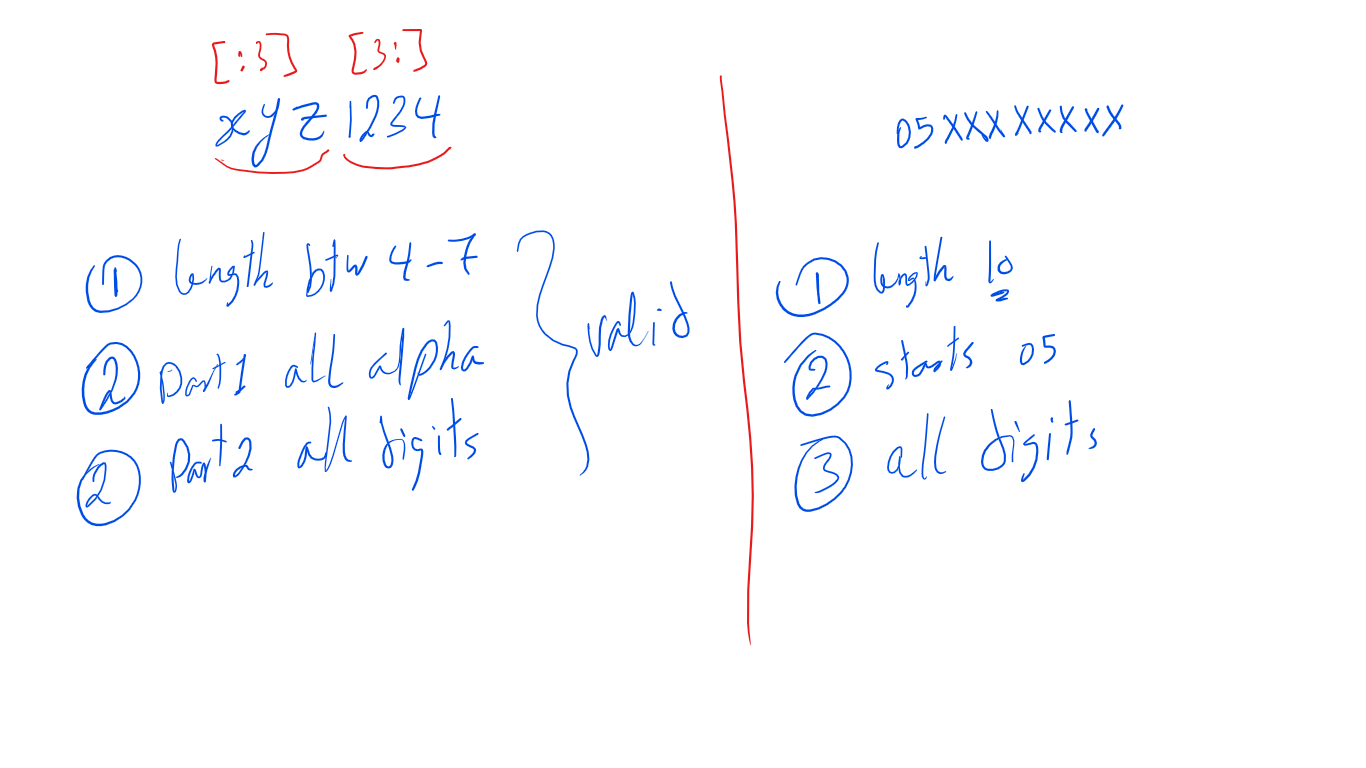 [:3] [3:]
xyz 1234
① length btw 4-7
② Part1 all alpha
② Part2 all digits
valid
05XXXXXXXX
① length 10
② starts 05
③ all digits